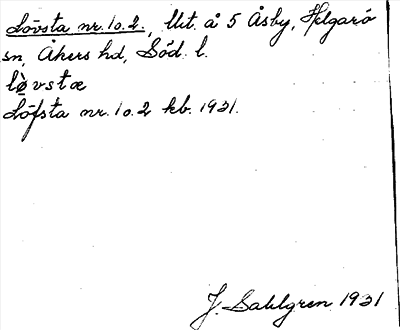 Lövsta nr. 1 o. 2., Utt. å 5 Åsby, Helgarö
sn, Åkers hd, Söd. l.
lø̀vstæ
Löfsta nr. 1 o. 2 kb. 1931.
J. Sahlgren 1931